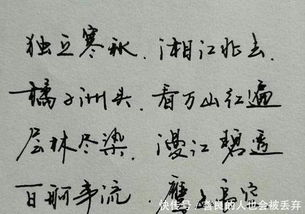 独立寒秋.湘江北去.
橘子洲头.看万山红遍
层林尽染.漫江碧透
百舸争流.鹰击长空
快传号/善良的人也会被丢弃